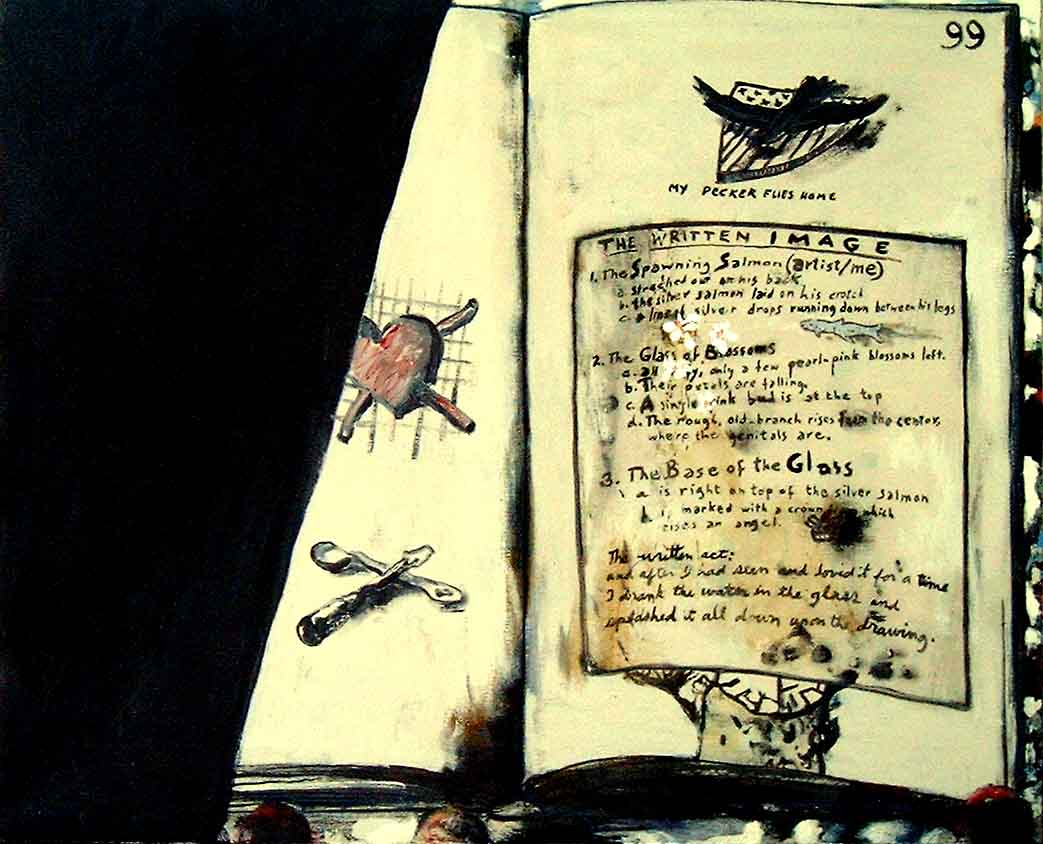 99
MY PECKER FLIES HOME
THE WRITTEN IMAGE
1. The Spawning Salmon (artist/me)
a. streched out on his back
b. the silver salmon laid on his crotch
c. silver drops running down between his legs
2. The Glass of Blossoms
a. all only a few pearl-pink blossoms left.
b. Their petals are falling.
c. A single pink bud is at the top
d. The rough, old-branch rises from the center,
where the genitals are.
3. The Base of the Glass
a is right on top of the silver salmon
b is marked with a crown which
rises an angel.
The written act:
and after I had seen and loved it for a time
I drank the water in the glass and
splashed it all down upon the drawing.